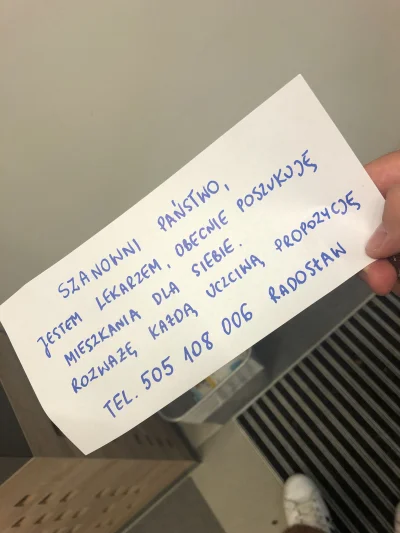 SZANOWNI PAŃSTWO,
JESTEM LEKARZEM, OBECNIE POSZUKUJĘ
MIESZKANIA DLA SIEBIE.
ROZWAŻĘ KAŻDĄ UCZCIWĄ PROPOZYCJĘ
TEL. 505 108 006 RADOSŁAW